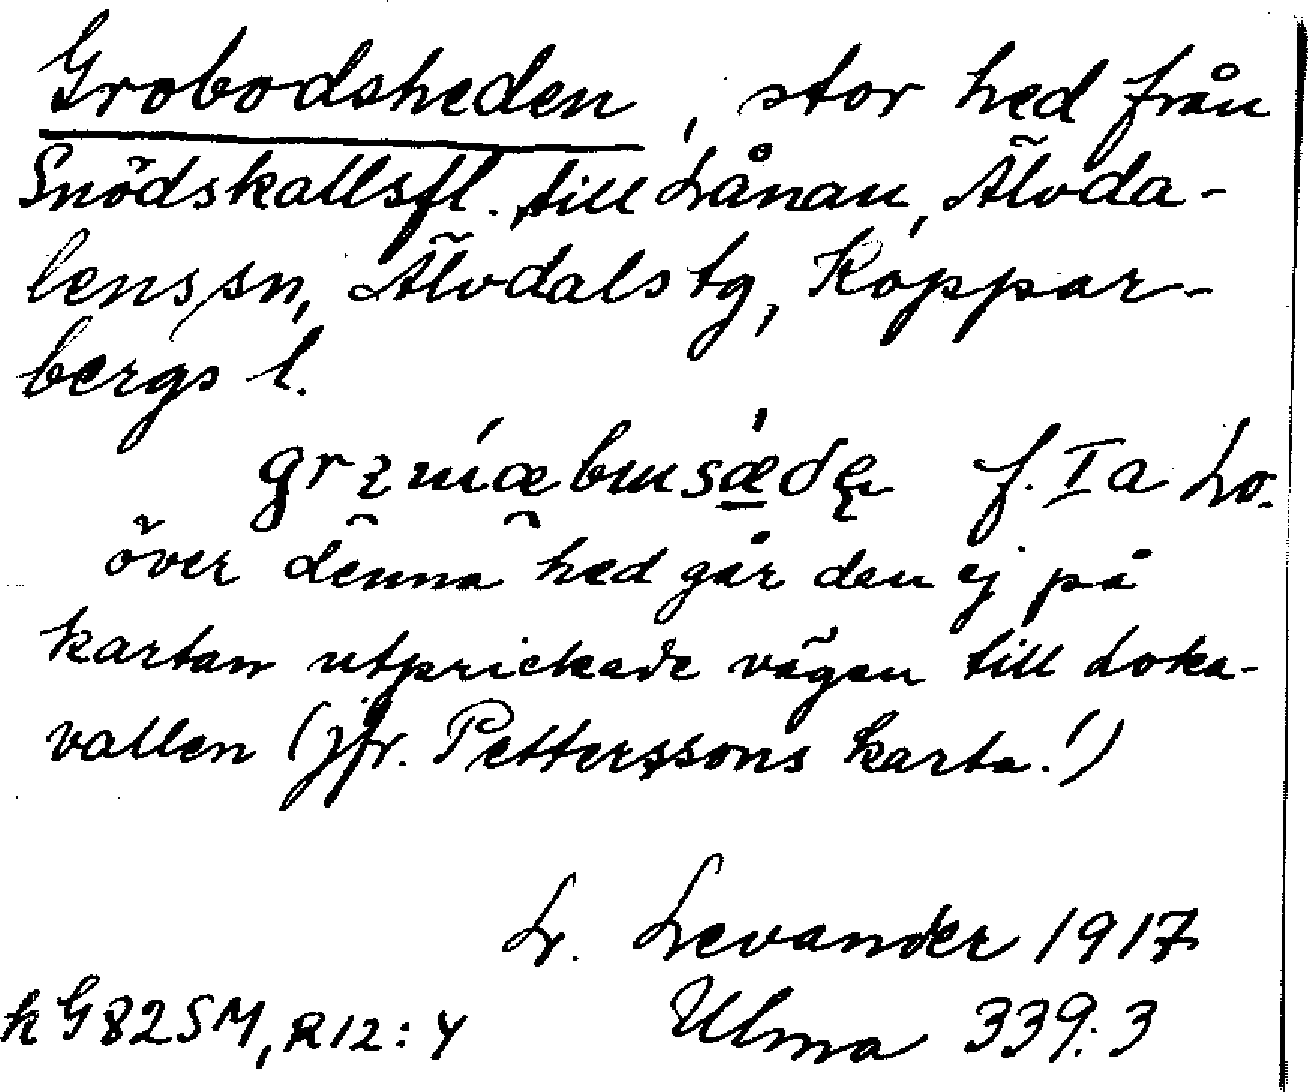 Grobodsheden, stor hed från
Snödskallsfl. till Lånan, Älvda-
lens sn, Älvdals tg, Koppar-
bergs l.
f. Ia Lo.
över denna hed går den ej på
kartan utprickade vägen till Loka-
vallen (jfr. Petterssons karta!)
L. Levander 1917
Ulma 339:3
k G82SM, R12:4